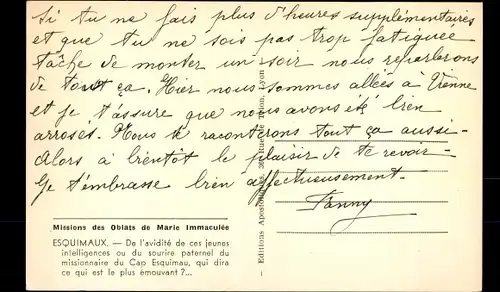 Si tu ne fais plus d'heures supplémentaires
et que tu ne sois pas trop fatiguée
tâche de monter un soir nous reparlerons
de tout ça. Hier nous sommes allées à Vienne
et je t'assure que nous avons été bien
arrosés. Nous te raconterons tout ça aussi-
Alors à bientôt le plaisir de te revoir-
Je t'embrasse bien affectueusement.
Fanny
Missions des Oblats de Marie Immaculée
ESQUIMAUX. — De l'avidité de ces jeunes
intelligences ou du sourire paternel du
missionnaire du Cap Esquimau, qui dira
ce qui est le plus émouvant ?...
Editions Apostoliques, Lyon